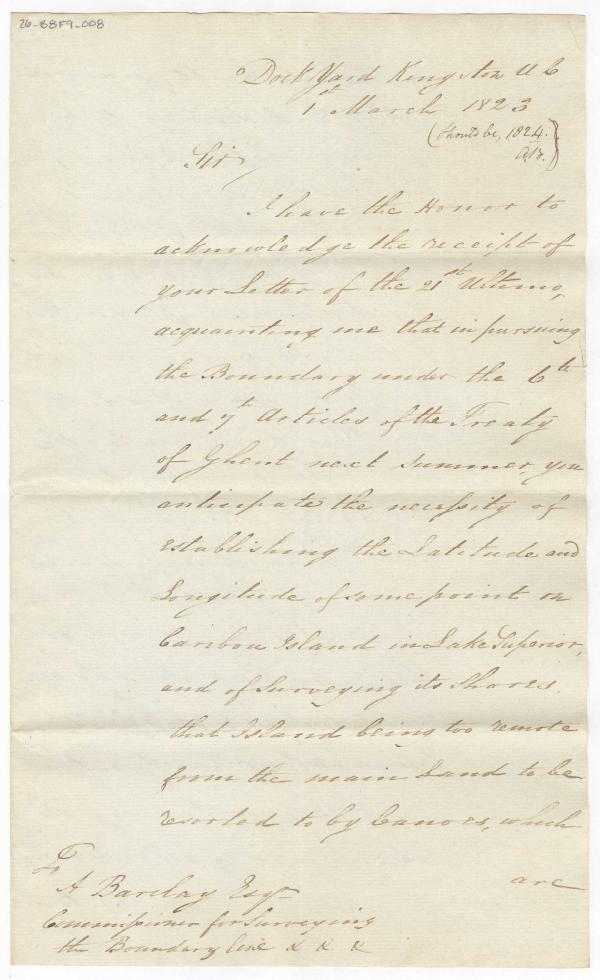 26-B8F9-008
Dock Yard Kingston U C
1st March 1823
(should be, 1824.
A.B.)
Sir,
I have the Honor to
acknowledge the receipt of
your Letter of the 21st Ultimo,
acquainting me that in pursuing
the Boundary under the 6th
and 7th Articles of the Treaty
of Ghent next summer, you
anticipate the necessity of
establishing the Latitude and
Longitude of some point on
Caribou Island in Lake Superior,
and of Surveying its Shores.
that Island being too remote
from the main Land to be
resorted to by Canoes, which
are
To
A Barclay Esqr
Commissioner for Surveying
the Boundary line & & &